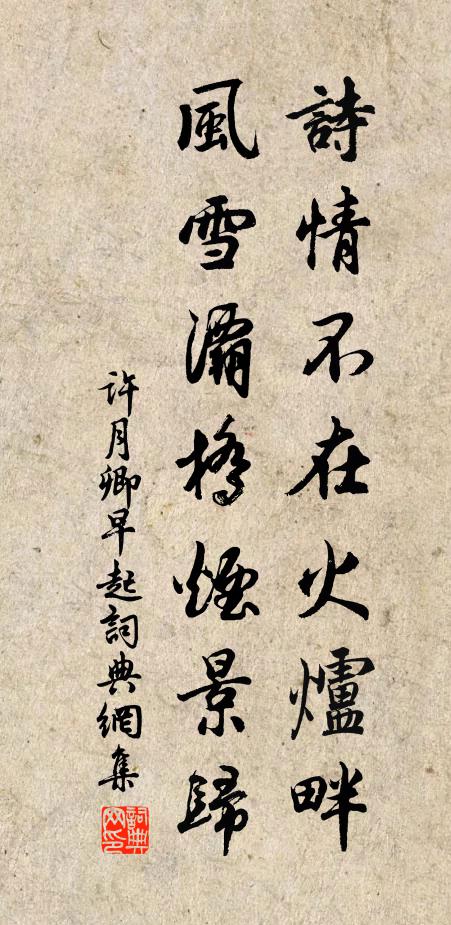 詩情不在火爐畔
風雪灞橋煙景歸
許月卿早起詞典網集
詞典网印